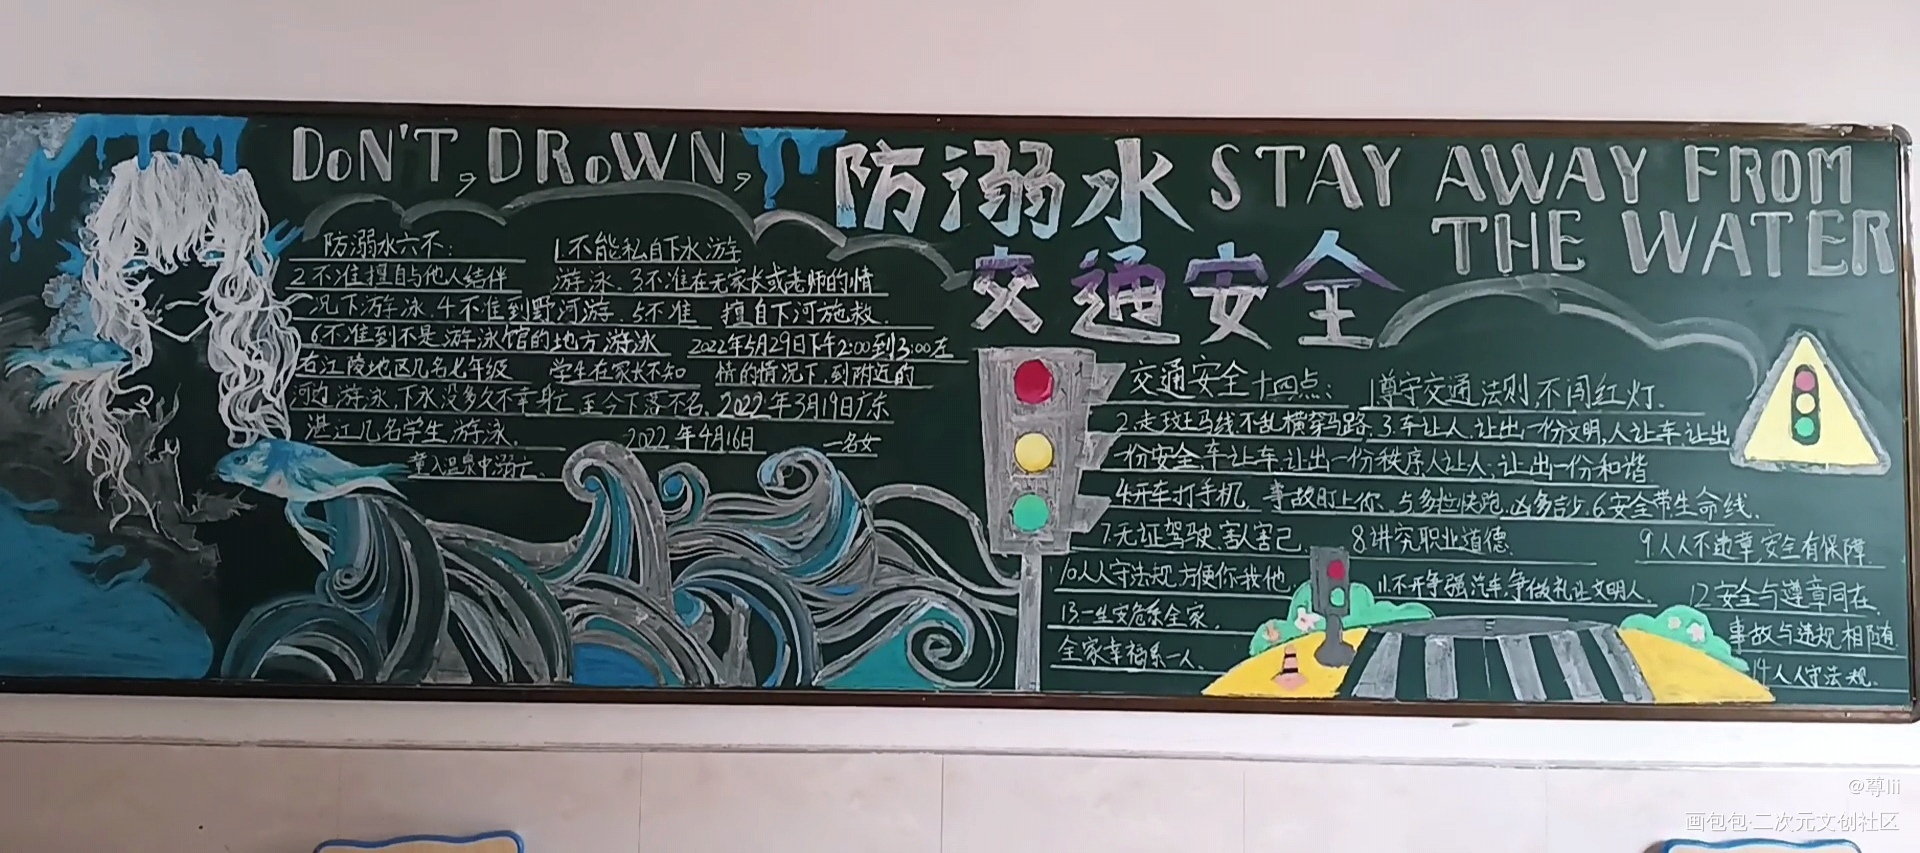 DON'T, DROWN,
防溺水
STAY AWAY FROM
THE WATER
交通安全
防溺水六不: 1.不能私自下水游
2不准擅自与他人结伴 游泳.3不准在无家长或老师的情
况下游泳.4不准到野河游.5不准 擅自下河施救.
6不准到不是游泳馆的地方游泳 2022年5月29日下午2:00到3:00左
右江陵地区几名七年级 学生在家长不知 情的情况下,到附近的
河边游泳,下水没多久不幸身亡 至今下落不名.2022年3月19日广东
湛江几名学生游泳. 2022年4月16日 一名女
童入温泉中溺亡.
交通安全十四点: 1尊守交通法则,不闯红灯.
2.走斑马线不乱横穿马路.3.车让人.让出一份文明,人让车.让出
一份安全.车让车.让出一份秩序人让人;让出一份和谐
4.开车打手机 事故盯上你.5多拉快跑.凶多吉少.6安全带生命线.
7.无证驾驶.害人害己 8讲究职业道德 9.人人不违章,安全有保障.
10人人守法规方便你我他 11.不开争强汽车,争做礼让文明人. 12安全与遵章同在.
13.一人安危系全家. 事故与违规相随
全家幸福系一人. 14人人守法规.
@尊lii
画包包·二次元文创社区